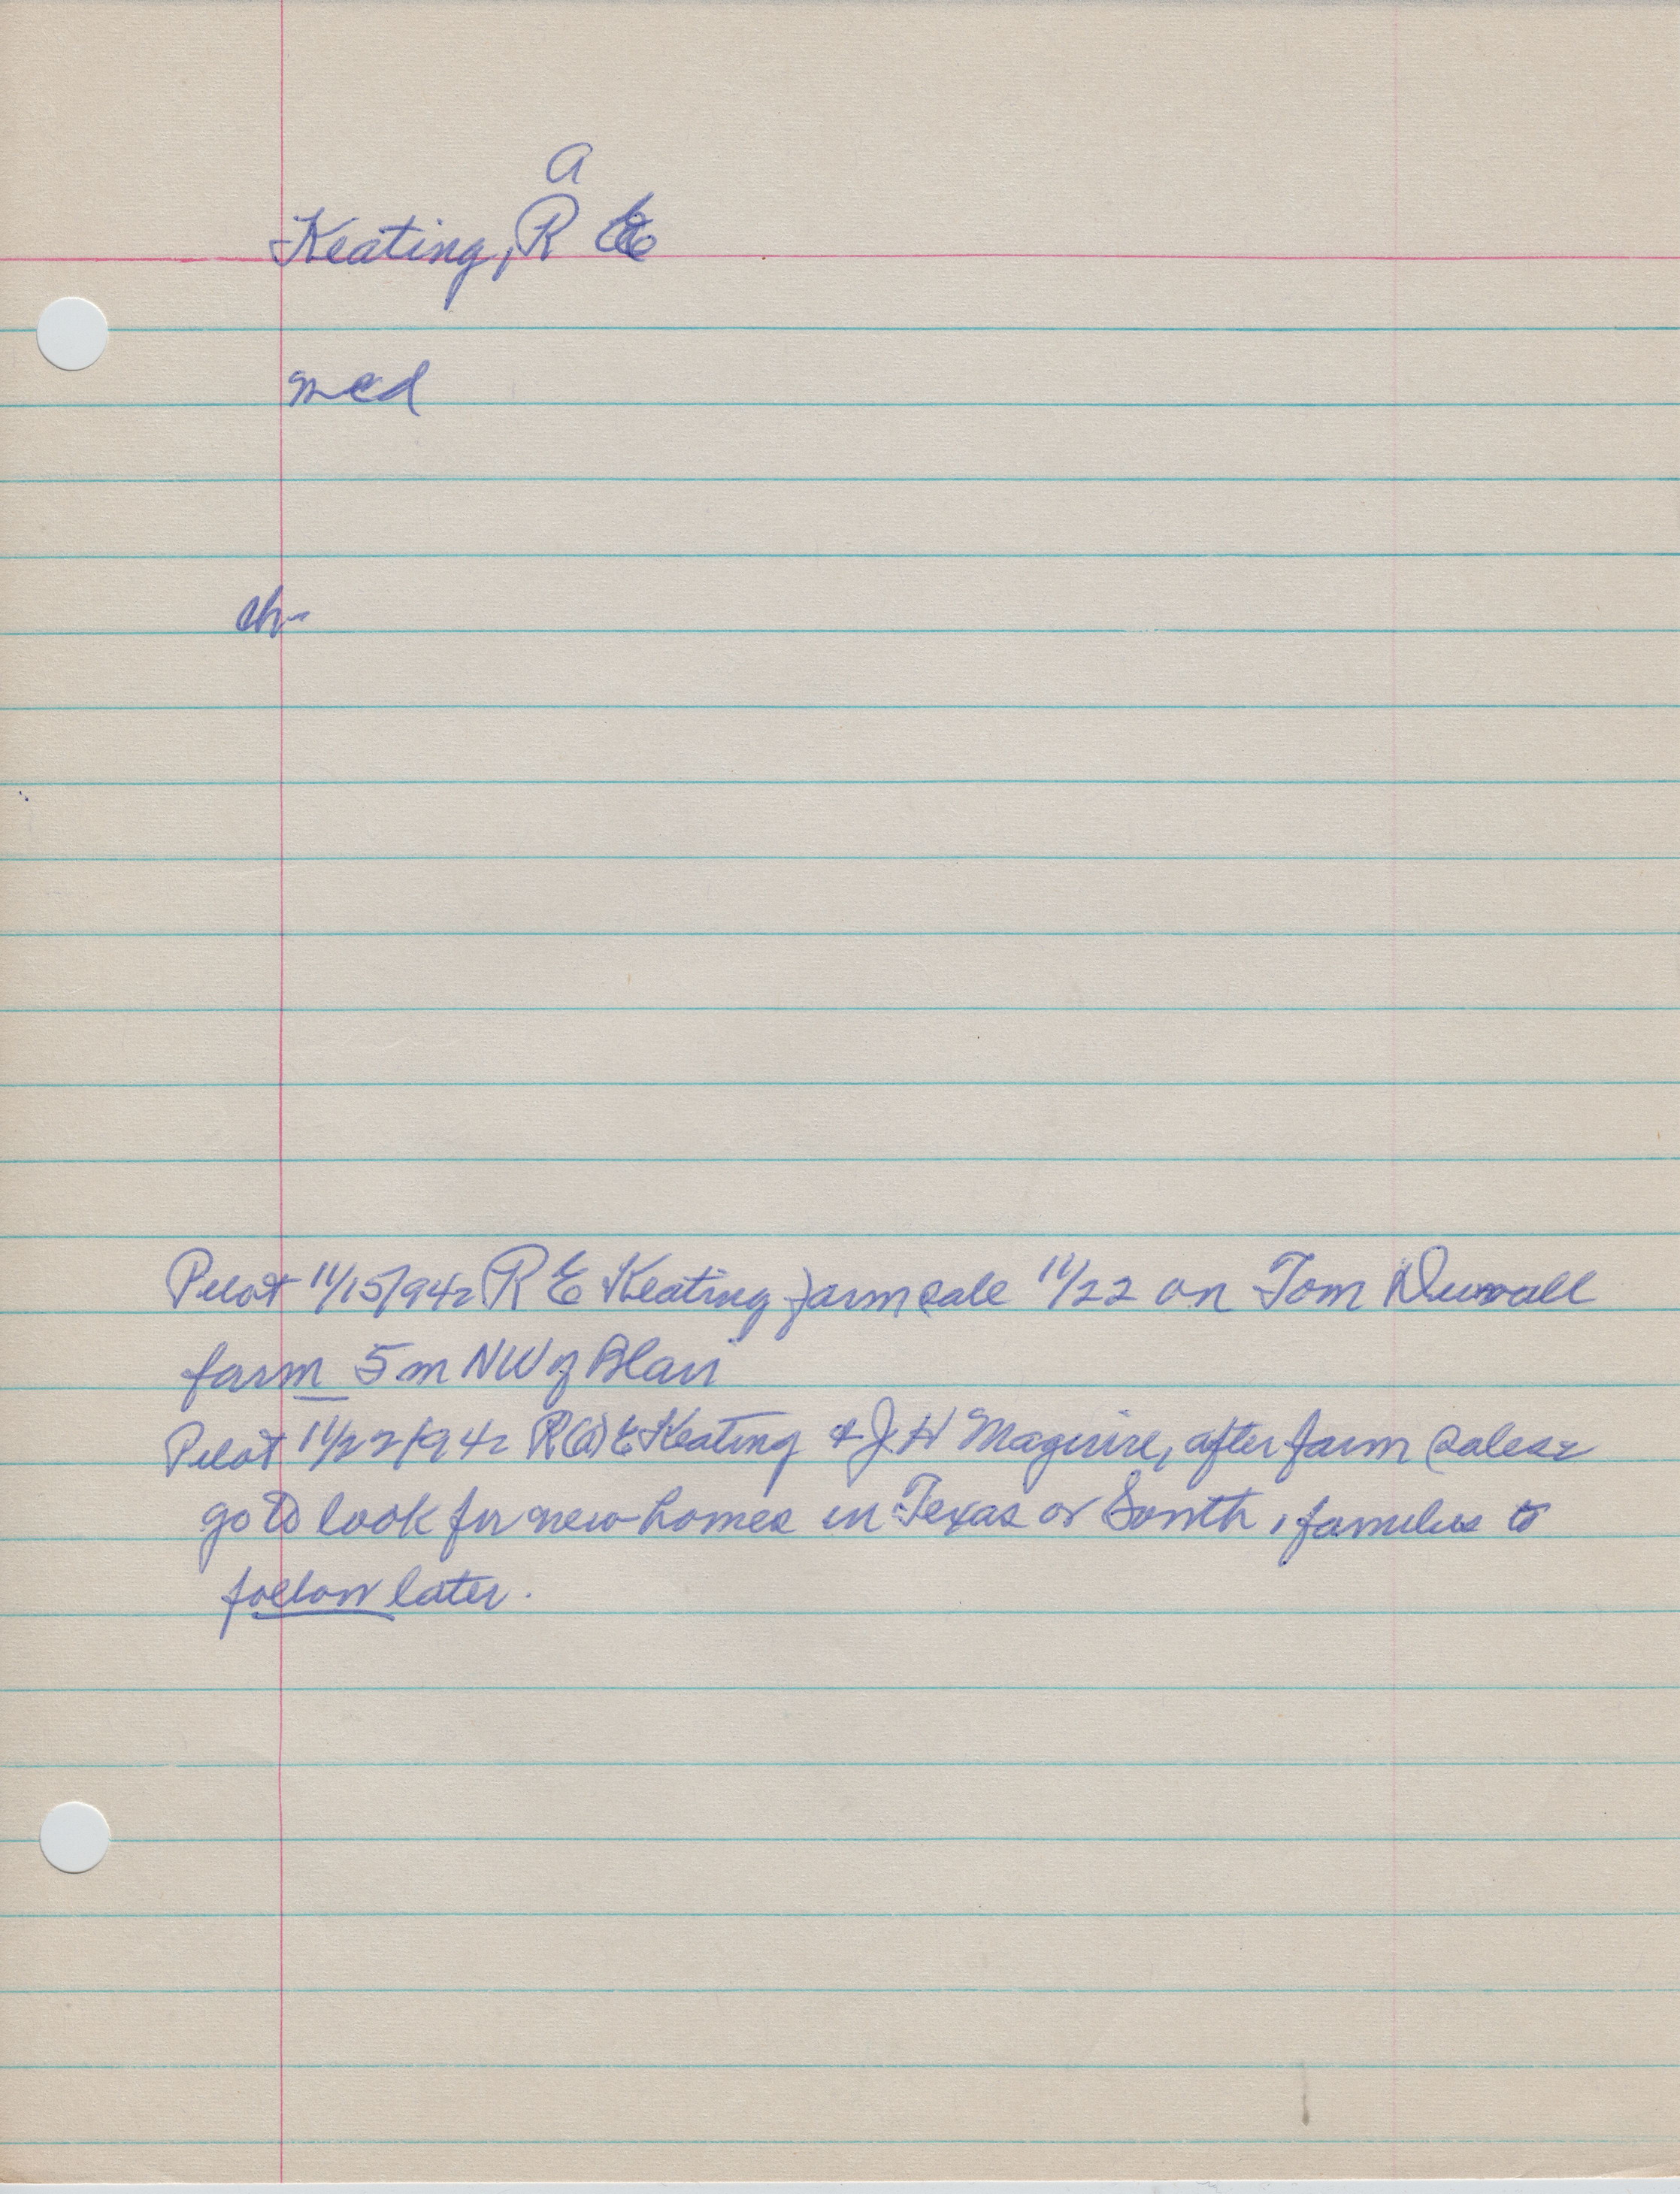 a
Keating, R E
med
ch-
Pilot 11/15/1942 R E Keating farm sale 11/22 on Tom Duvall
farm 5 m NW of Blair
Pilot 11/22/1942 R(a) E Keating & J H Maguire, after farm sales
go to look for new homes in Texas or South, families to
follow later.